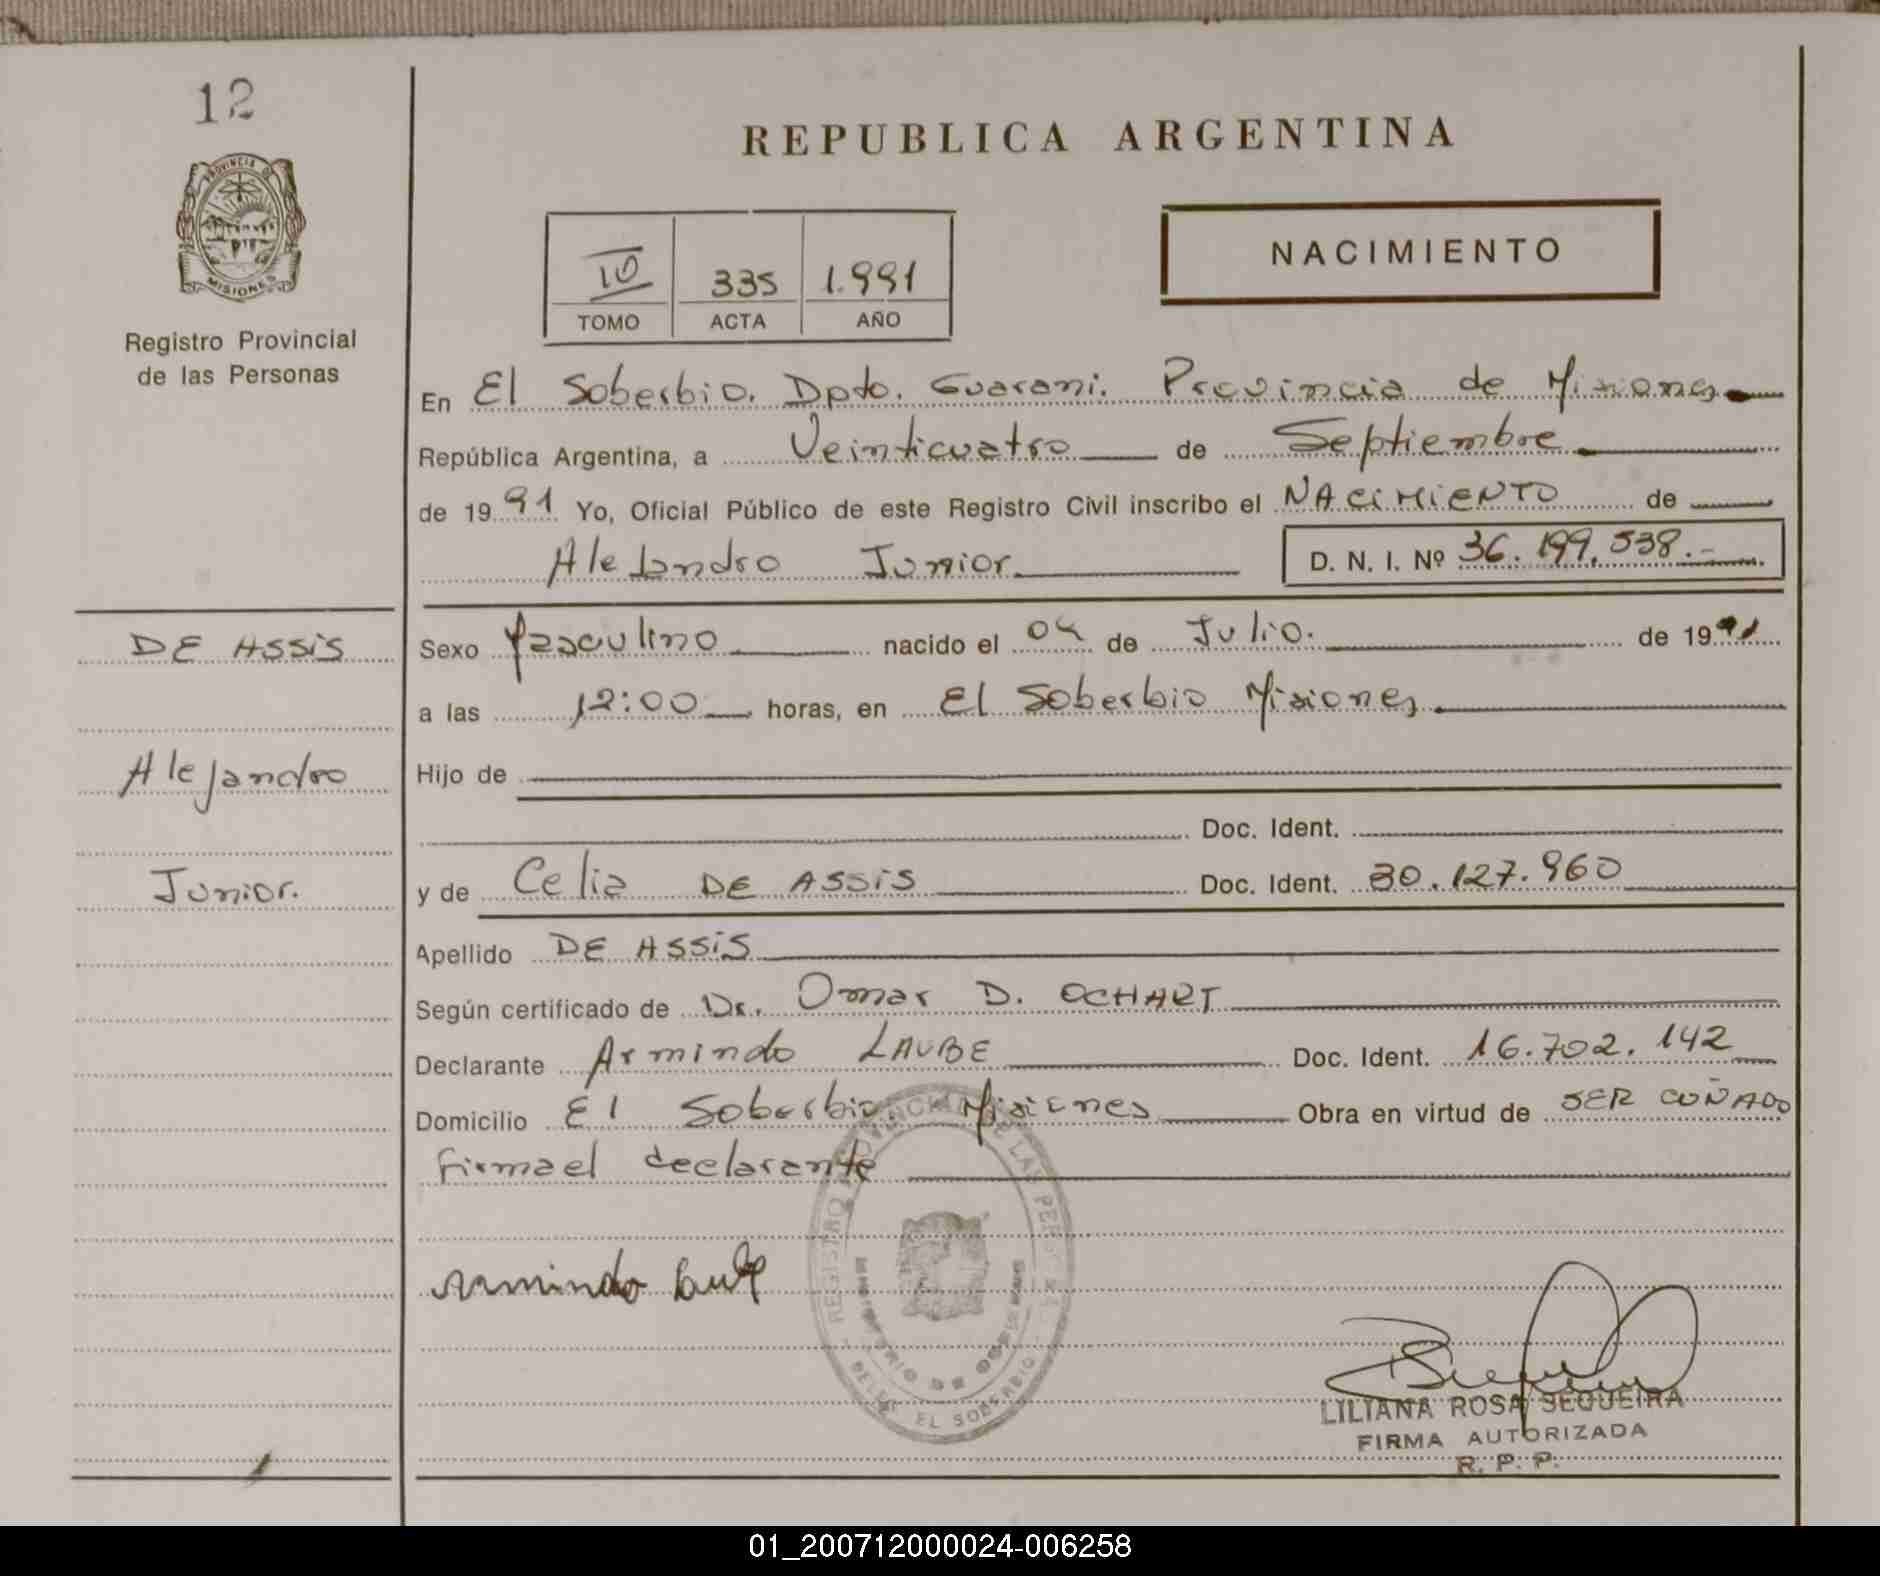 12
PROVINCIA DE
MISIONES
Registro Provincial
de las Personas
REPUBLICA ARGENTINA
NACIMIENTO
335 1.991
TOMO ACTA AÑO
En El Soberbio. Dpto. Guarani. Provincia de Misiones
República Argentina, a Veinticuatro de Septiembre
de 1991 Yo, Oficial Público de este Registro Civil inscribo el NACIMIENTO de
Alejandro Junior D. N. I. Nº 36.199.538.-
DE ASSiS
Alejandro
Junior.
Sexo Masculino nacido el 04 de Julio. de 1991
a las 12:00 horas, en El Soberbio Misiones
Hijo de
Doc. Ident.
y de Celia DE ASSiS Doc. Ident. 30.127.960
Apellido DE ASSiS
Según certificado de Dr. Omar D. OCHART
Declarante Armindo LAUBE Doc. Ident. 16.702.142
Domicilio El Soberbio Misiones Obra en virtud de SER CUÑADO
firma el declarante
REGISTRO PROVINCIAL DE LAS PERSONAS
EL SOBERBIO
LILIANA ROSA SEQUEIRA
FIRMA AUTORIZADA
R. P. P.
01_200712000024-006258